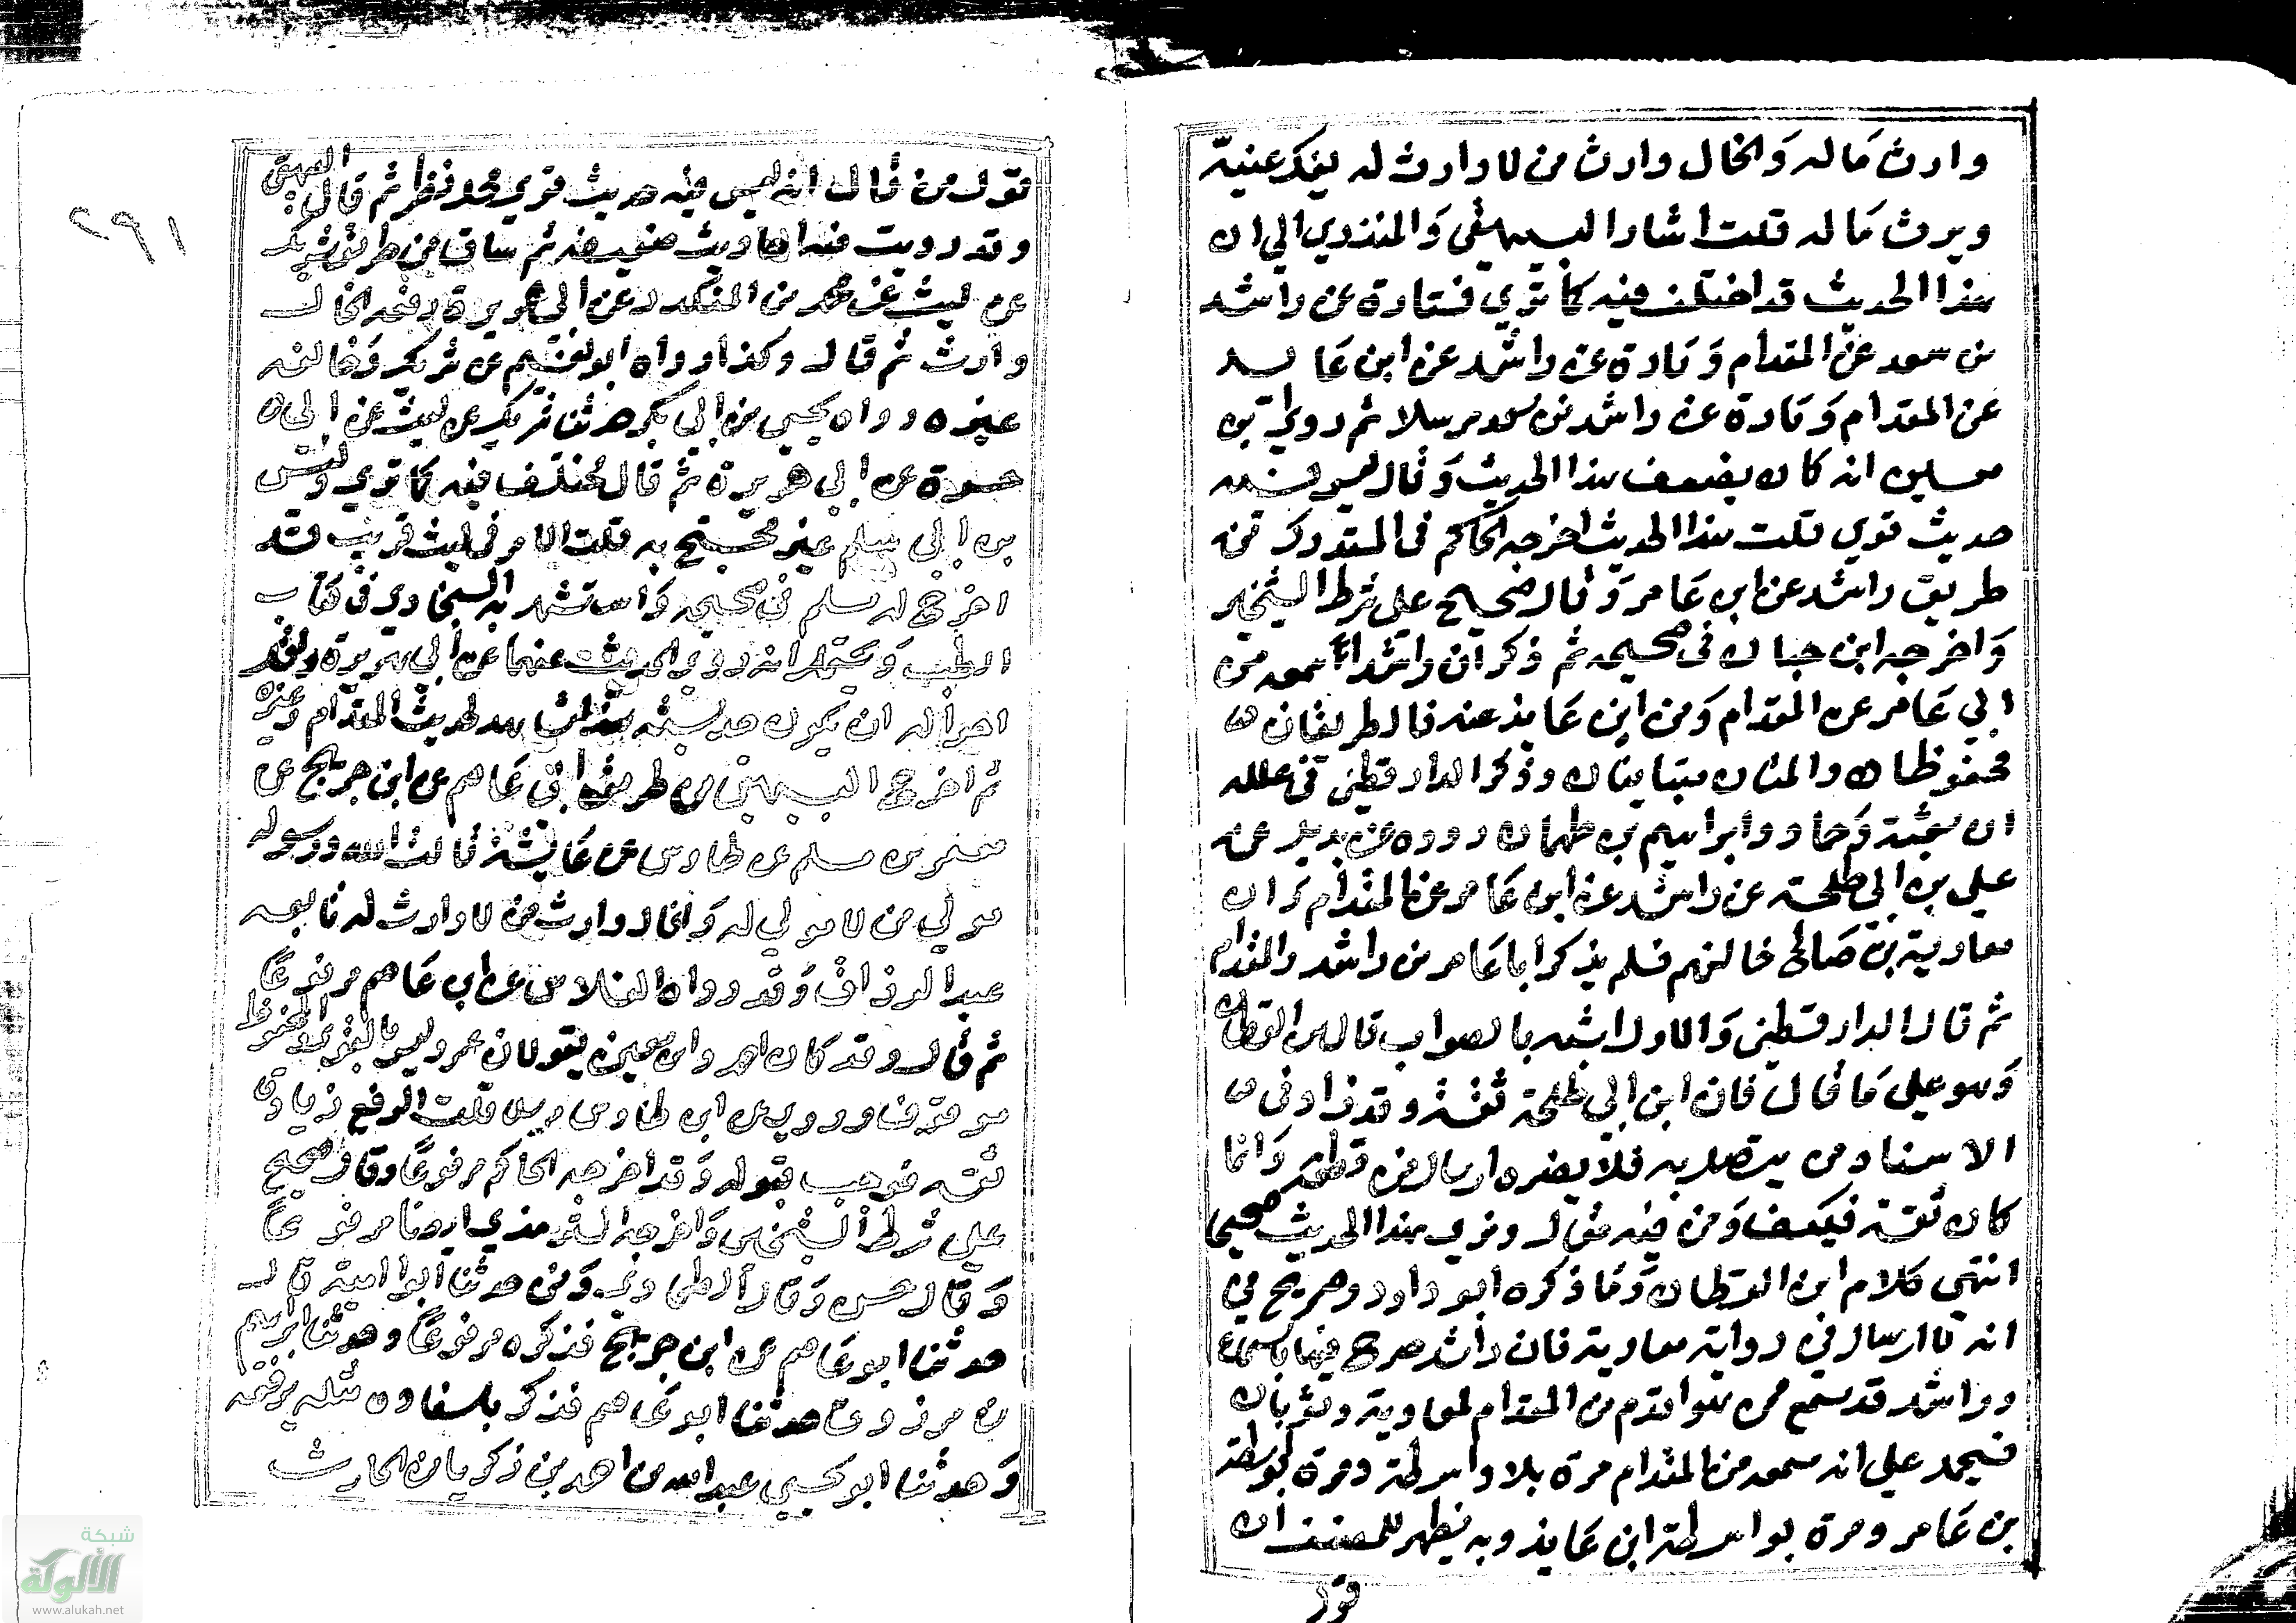 وارث ماله والخال وارث من لا وارث له يفك عنيه
ويرث ماله قلت اشار البيهقي والمنذري الي ان
هذا الحديث قد اختلف فيه كما تري فتارة عن راشد
بن سعد عن المقدام وتارة عن راشد عن ابن عايذ
عن المقدام وتارة عن راشد بن سعد مرسلا ثم روي بن
معين انه كان يضعف هذا الحديث وقال ليس فيه
حديث قوي قلت هذا الحديث اخرجه الحاكم في المستدرك من
طريق راشد عن ابي عامر وقال صحيح علي شرط الشيخين
واخرجه ابن حبان في صحيحه ثم ذكر ان راشدا سمعه من
ابي عامر عن المقدام ومن ابن عايذ عنه فالطريقان
محفوظان والمتنان متباينان وذكر الدارقطني في علله
ان شعبة وحماد وابراهيم بن طهمان رووه عن بديل عن
علي بن ابي طلحة عن راشد عن ابي عامر عن المقدام وان
معاوية بن صالح خالفهم فلم يذكر ابا عامر بين راشد والمقدام
ثم قال الدارقطني والاول اشبه بالصواب قال ابن القطان
وهو علي ما قال فان ابن ابي طلحة ثقة وقد زاد في
الاسناد من يتصل به فلا يضره ارسال من قطعه وان
كان ثقة فكيف ومن فيه مقال ونري هذا الحديث صحيحا
انتهي كلام ابن القطان وما ذكره ابو داود صريح في
انه لا ارسال في رواية معاوية فان راشد صرح فيها بالسماع
وراشد قد سمع ممن هو اقدم من المقدام كمعاوية وثوبان
فيحمل علي انه سمعه من المقدام مرة بلا واسطة ومرة بواسطة
بن عامر ومرة بواسطة ابن عايذ وبه يظهر للمصنف ان
قول
٢٩١
قول من قال انه ليس فيه حديث قوي محل نظر ثم قال البيهقي
وقد رويت فيه احاديث ضعيفة ثم ساق من طريق شريك
عن ليث عن محمد بن المنكدر عن ابي هريرة رفعه الخال
وارث ثم قال وكذا رواه ابو نعيم عن شريك وخالفه
غيره رواه يحيي بن ابي بكير حدثنا شريك عن ليث عن ابي
هبيرة عن ابي هريرة ثم قال مختلف فيه كما تري وليث
بن ابي سليم غير محتج به قلت الامر في ليث قريب قد
اخرج له مسلم في صحيحه واستشهد به البخاري في كتاب
الطب ويحتمل انه روي الحديث عنهما عن ابي هريرة واقل
احواله ان يكون حديثه شاهد لحديث المقدام وغيره
ثم اخرج البيهقي من طريق ابي عاصم عن ابن جريج عن
عمرو بن مسلم عن طاوس عن عايشة قالت الله ورسوله
مولي من لا مولي له والخال وارث من لا وارث له تابعه
عبد الرزاق وقد رواه الفلاس عن ابي عاصم مرفوعا
ثم قال وقد كان احمد وابن معين يقولان عمرو ليس بالقوي والمحفوظ
موقوف وروي عن ابن طاوس مرسلا قلت الرفع زيادة
ثقة فوجب قبوله وقد اخرجه الحاكم مرفوعا وقال صحيح
علي شرط الشيخين واخرجه الترمذي ايضا مرفوعا
وقال حسن وقال الطحاوي حدثنا ابو امية قال
حدثنا ابو عاصم عن ابن جريج فذكره مرفوعا وحدثنا ابراهيم
بن مرزوق حدثنا ابو عاصم فذكر باسناده مثله يرفعه
وحدثنا ابو يحيي عبد الله بن احمد بن زكريا بن الحارث
شبكة
الألوكة
www.alukah.net